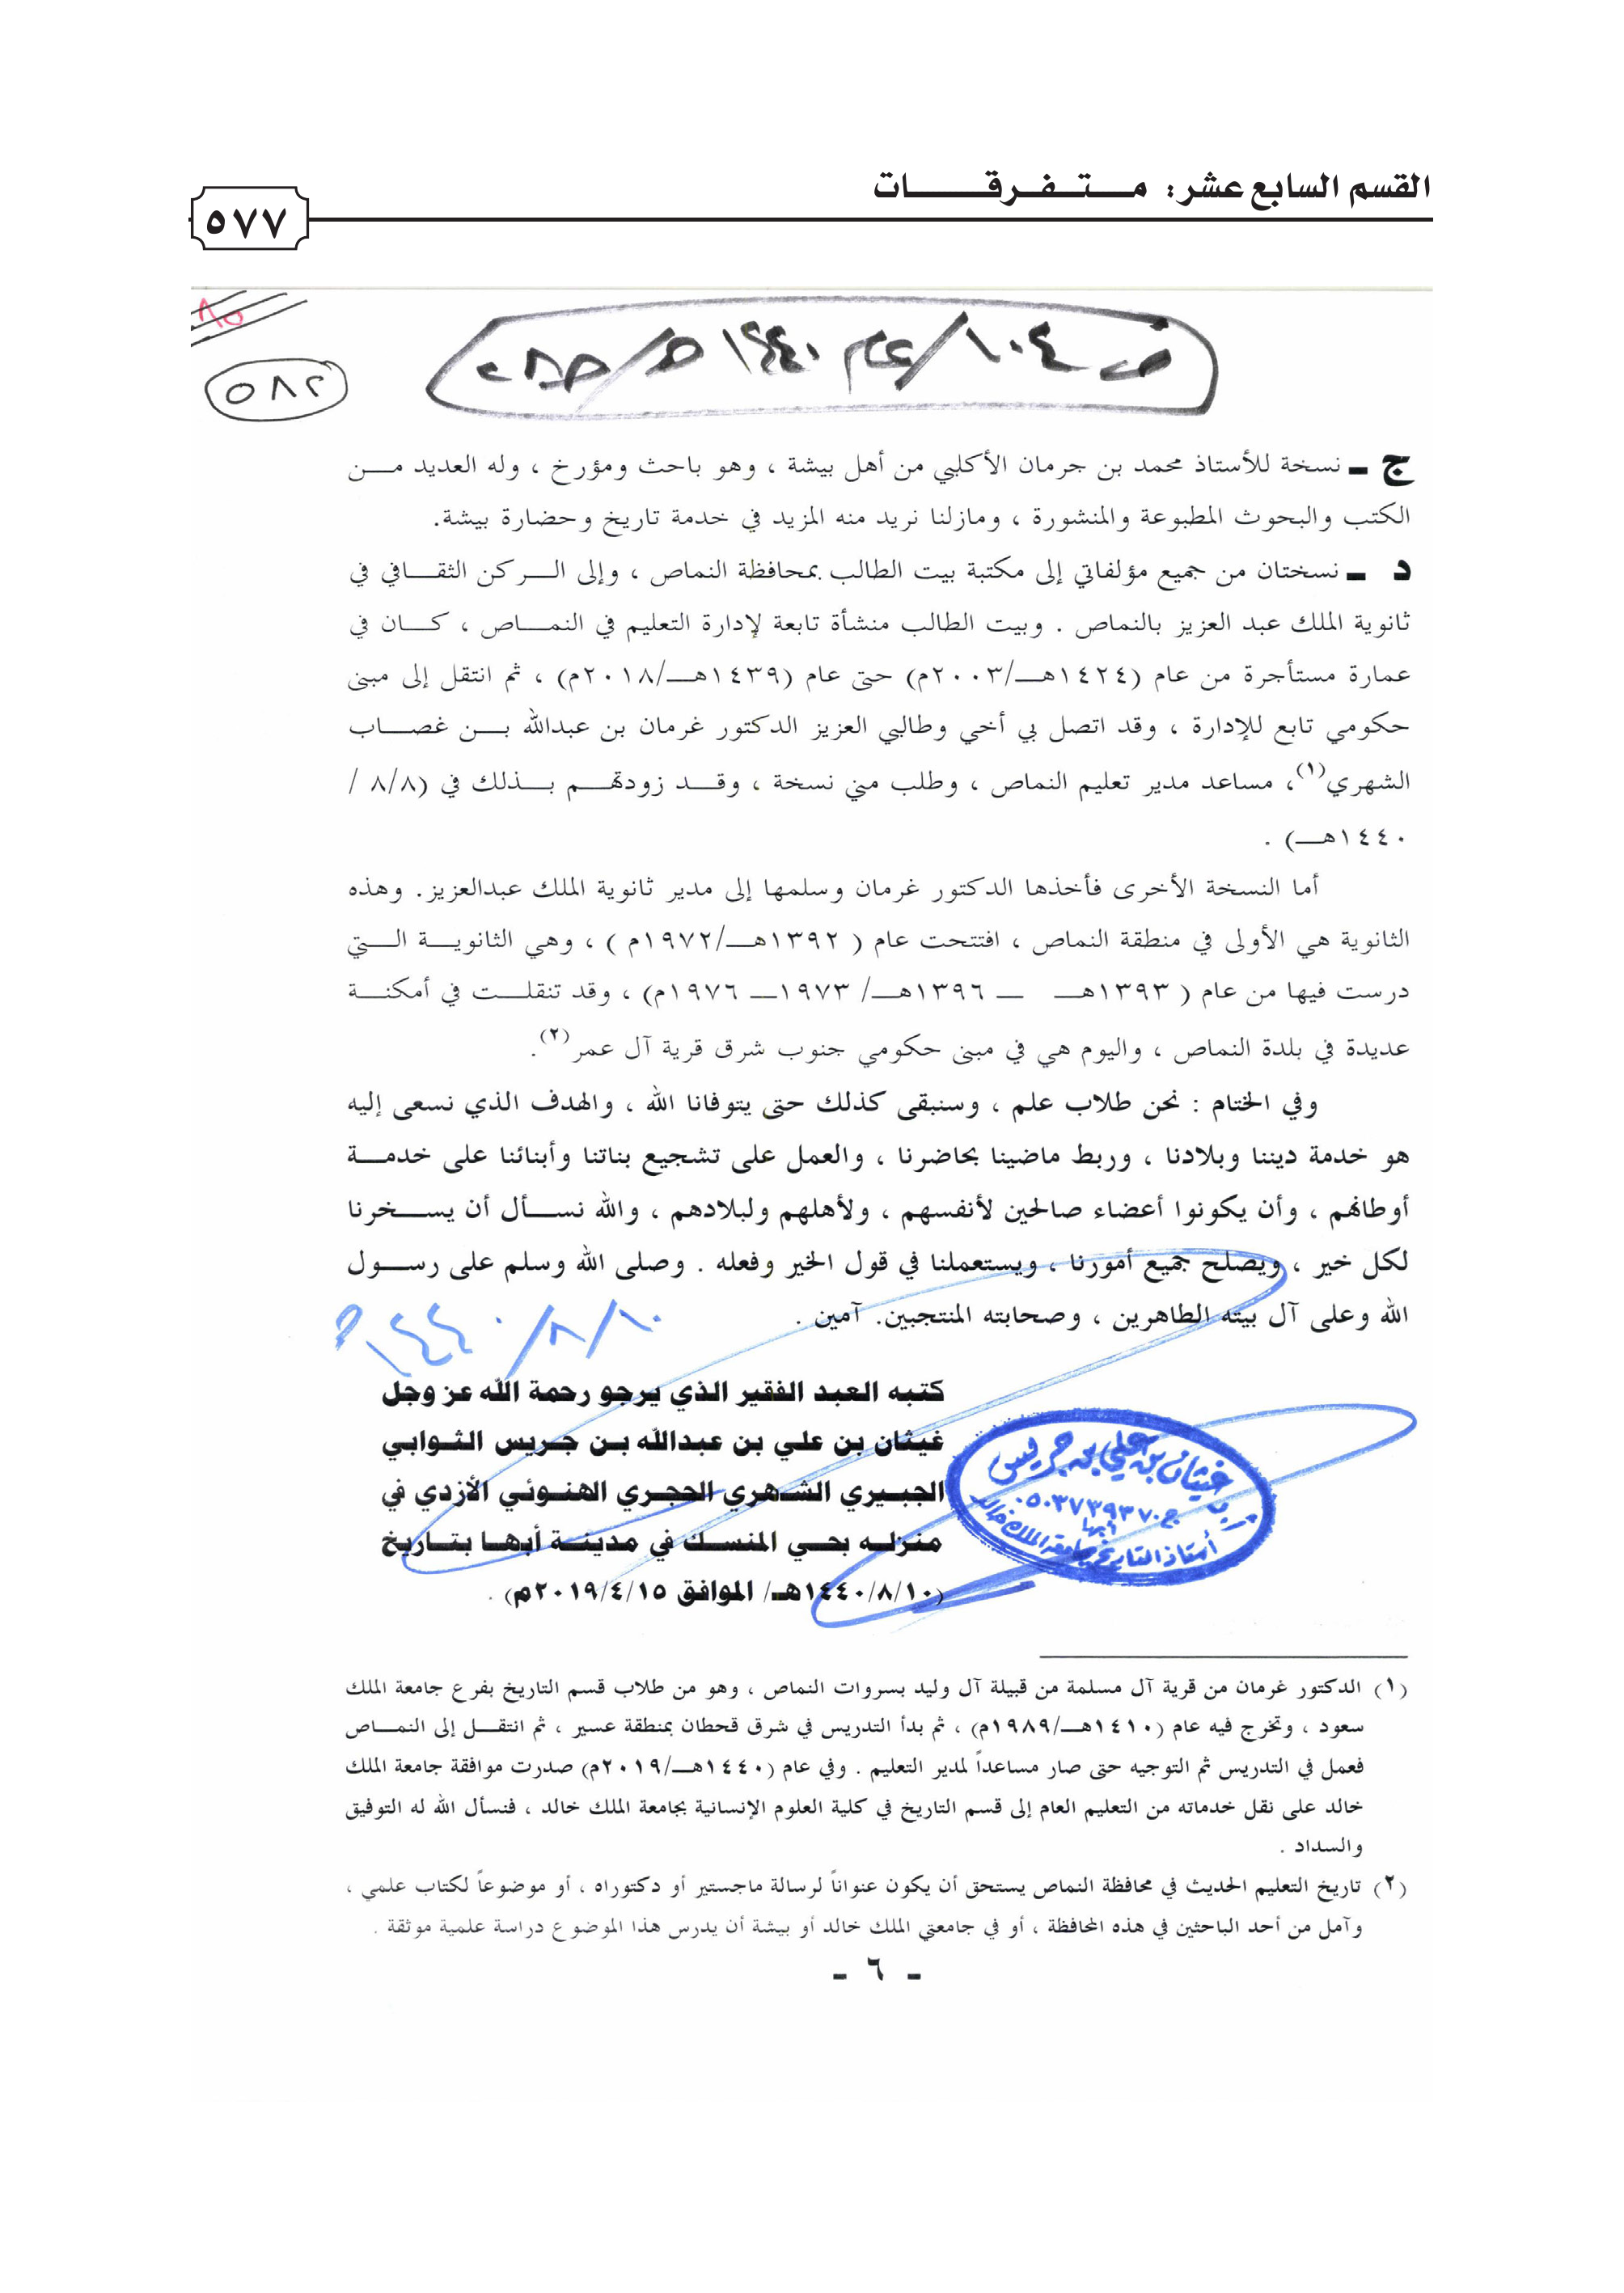 القسم السابع عشر: متفرقات
٥٧٧
٥٨٢
ج - نسخة للأستاذ محمد بن جرمان الأكلبي من أهل بيشة ، وهو باحث ومؤرخ ، وله العديد من
الكتب والبحوث المطبوعة والمنشورة ، ومازلنا نريد منه المزيد في خدمة تاريخ وحضارة بيشة.
د - نسختان من جميع مؤلفاتي إلى مكتبة بيت الطالب بمحافظة النماص ، وإلى الركن الثقافي في
ثانوية الملك عبد العزيز بالنماص . وبيت الطالب منشأة تابعة لإدارة التعليم في النماص ، كان في
عمارة مستأجرة من عام (١٤٢٤هـ/٢٠٠٣م) حتى عام (١٤٣٩هـ/٢٠١٨م) ، ثم انتقل إلى مبنى
حكومي تابع للإدارة ، وقد اتصل بي أخي وطالبي العزيز الدكتور غرمان بن عبدالله بن غصاب
الشهري(١)، مساعد مدير تعليم النماص ، وطلب مني نسخة ، وقد زودتهم بذلك في (٨/٨ /
١٤٤٠هـ) .
أما النسخة الأخرى فأخذها الدكتور غرمان وسلمها إلى مدير ثانوية الملك عبدالعزيز. وهذه
الثانوية هي الأولى في منطقة النماص ، افتتحت عام ( ١٣٩٢هـ/١٩٧٢م ) ، وهي الثانوية التي
درست فيها من عام ( ١٣٩٣هـ — ١٣٩٦هـ/ ١٩٧٣— ١٩٧٦م) ، وقد تنقلت في أمكنة
عديدة في بلدة النماص ، واليوم هي في مبنى حكومي جنوب شرق قرية آل عمر(٢).
وفي الختام : نحن طلاب علم ، وسنبقى كذلك حتى يتوفانا الله ، والهدف الذي نسعى إليه
هو خدمة ديننا وبلادنا ، وربط ماضينا بحاضرنا ، والعمل على تشجيع بناتنا وأبنائنا على خدمة
أوطانهم ، وأن يكونوا أعضاء صالحين لأنفسهم ، ولأهلهم ولبلادهم ، والله نسأل أن يسخرنا
لكل خير ، ويصلح جميع أمورنا ، ويستعملنا في قول الخير وفعله . وصلى الله وسلم على رسول
الله وعلى آل بيته الطاهرين ، وصحابته المنتجبين. آمين .
١٤٤٠/٨/١٠هـ
كتبه العبد الفقير الذي يرجو رحمة الله عز وجل
غيثان بن علي بن عبدالله بن جريس الثوابي
الجبيري الشهري الحجري الهنوئي الأزدي في
منزله بحي المنسك في مدينة أبها بتاريخ
(١٤٤٠/٨/١٠هـ/ الموافق ٢٠١٩/٤/١٥م) .
غيثان بن علي بن جريس
ج ٠٥٠٣٧٣٩٣٧٠
أبها
أستاذ التاريخ بجامعة الملك خالد
(١) الدكتور غرمان من قرية آل مسلمة من قبيلة آل وليد بسروات النماص ، وهو من طلاب قسم التاريخ بفرع جامعة الملك
سعود ، وتخرج فيه عام (١٤١٠هـ/١٩٨٩م) ، ثم بدأ التدريس في شرق قحطان بمنطقة عسير ، ثم انتقل إلى النماص
فعمل في التدريس ثم التوجيه حتى صار مساعداً لمدير التعليم . وفي عام (١٤٤٠هـ/٢٠١٩م) صدرت موافقة جامعة الملك
خالد على نقل خدماته من التعليم العام إلى قسم التاريخ في كلية العلوم الإنسانية بجامعة الملك خالد ، فنسأل الله له التوفيق
والسداد .
(٢) تاريخ التعليم الحديث في محافظة النماص يستحق أن يكون عنواناً لرسالة ماجستير أو دكتوراه ، أو موضوعاً لكتاب علمي ،
وآمل من أحد الباحثين في هذه المحافظة ، أو في جامعتي الملك خالد أو بيشة أن يدرس هذا الموضوع دراسة علمية موثقة .
- ٦ -